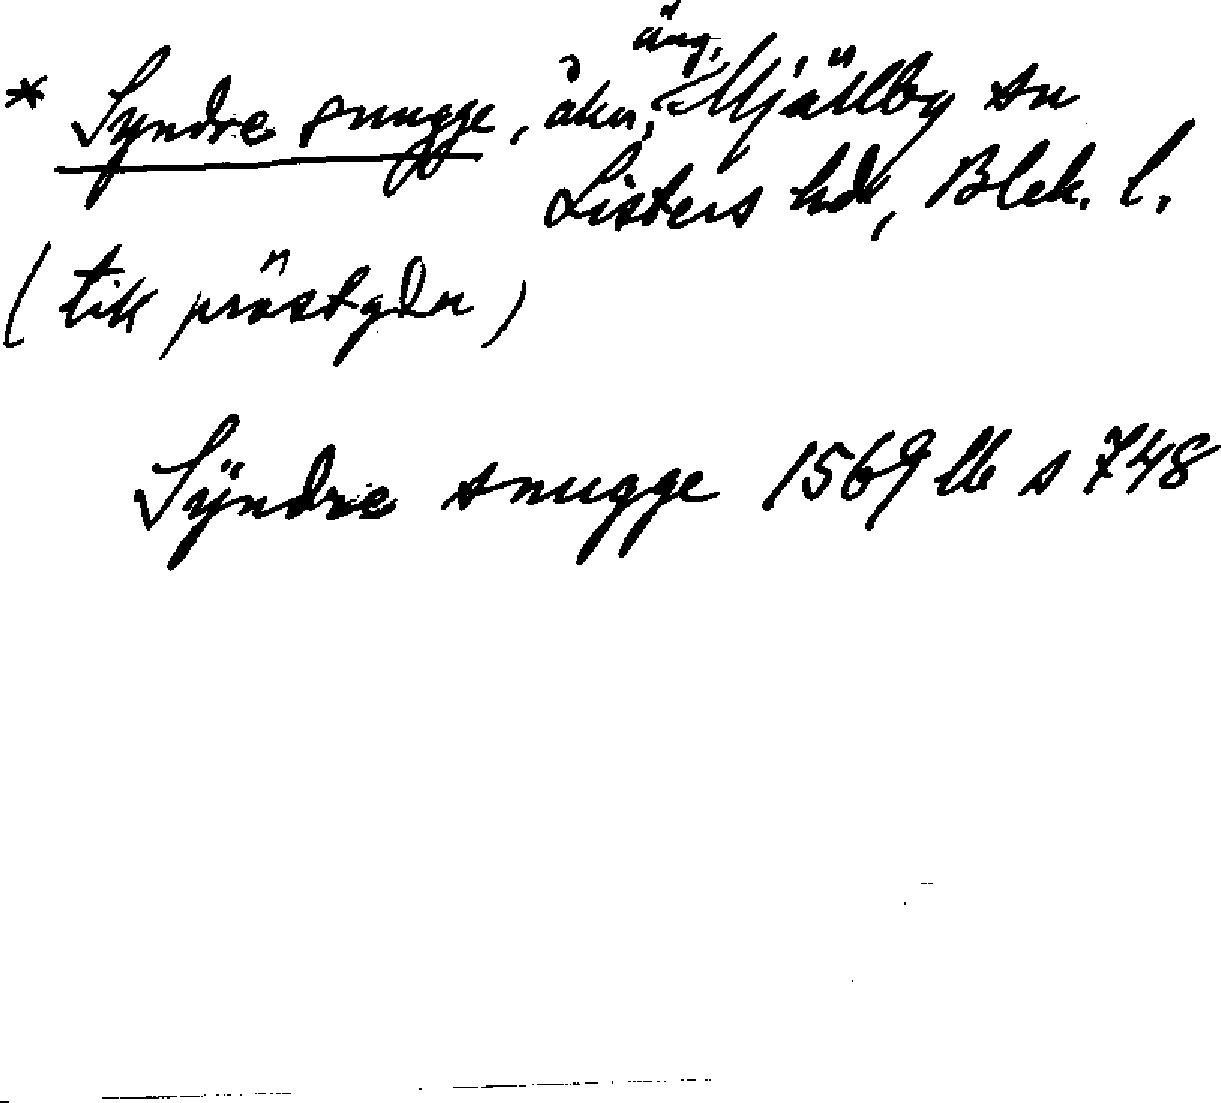 * Syndre snugge, åker, äng, Mjällby sn
Listers hd, Blek. l.
(tik prästgdn)
Sÿndre snugge 1569 lb s 748